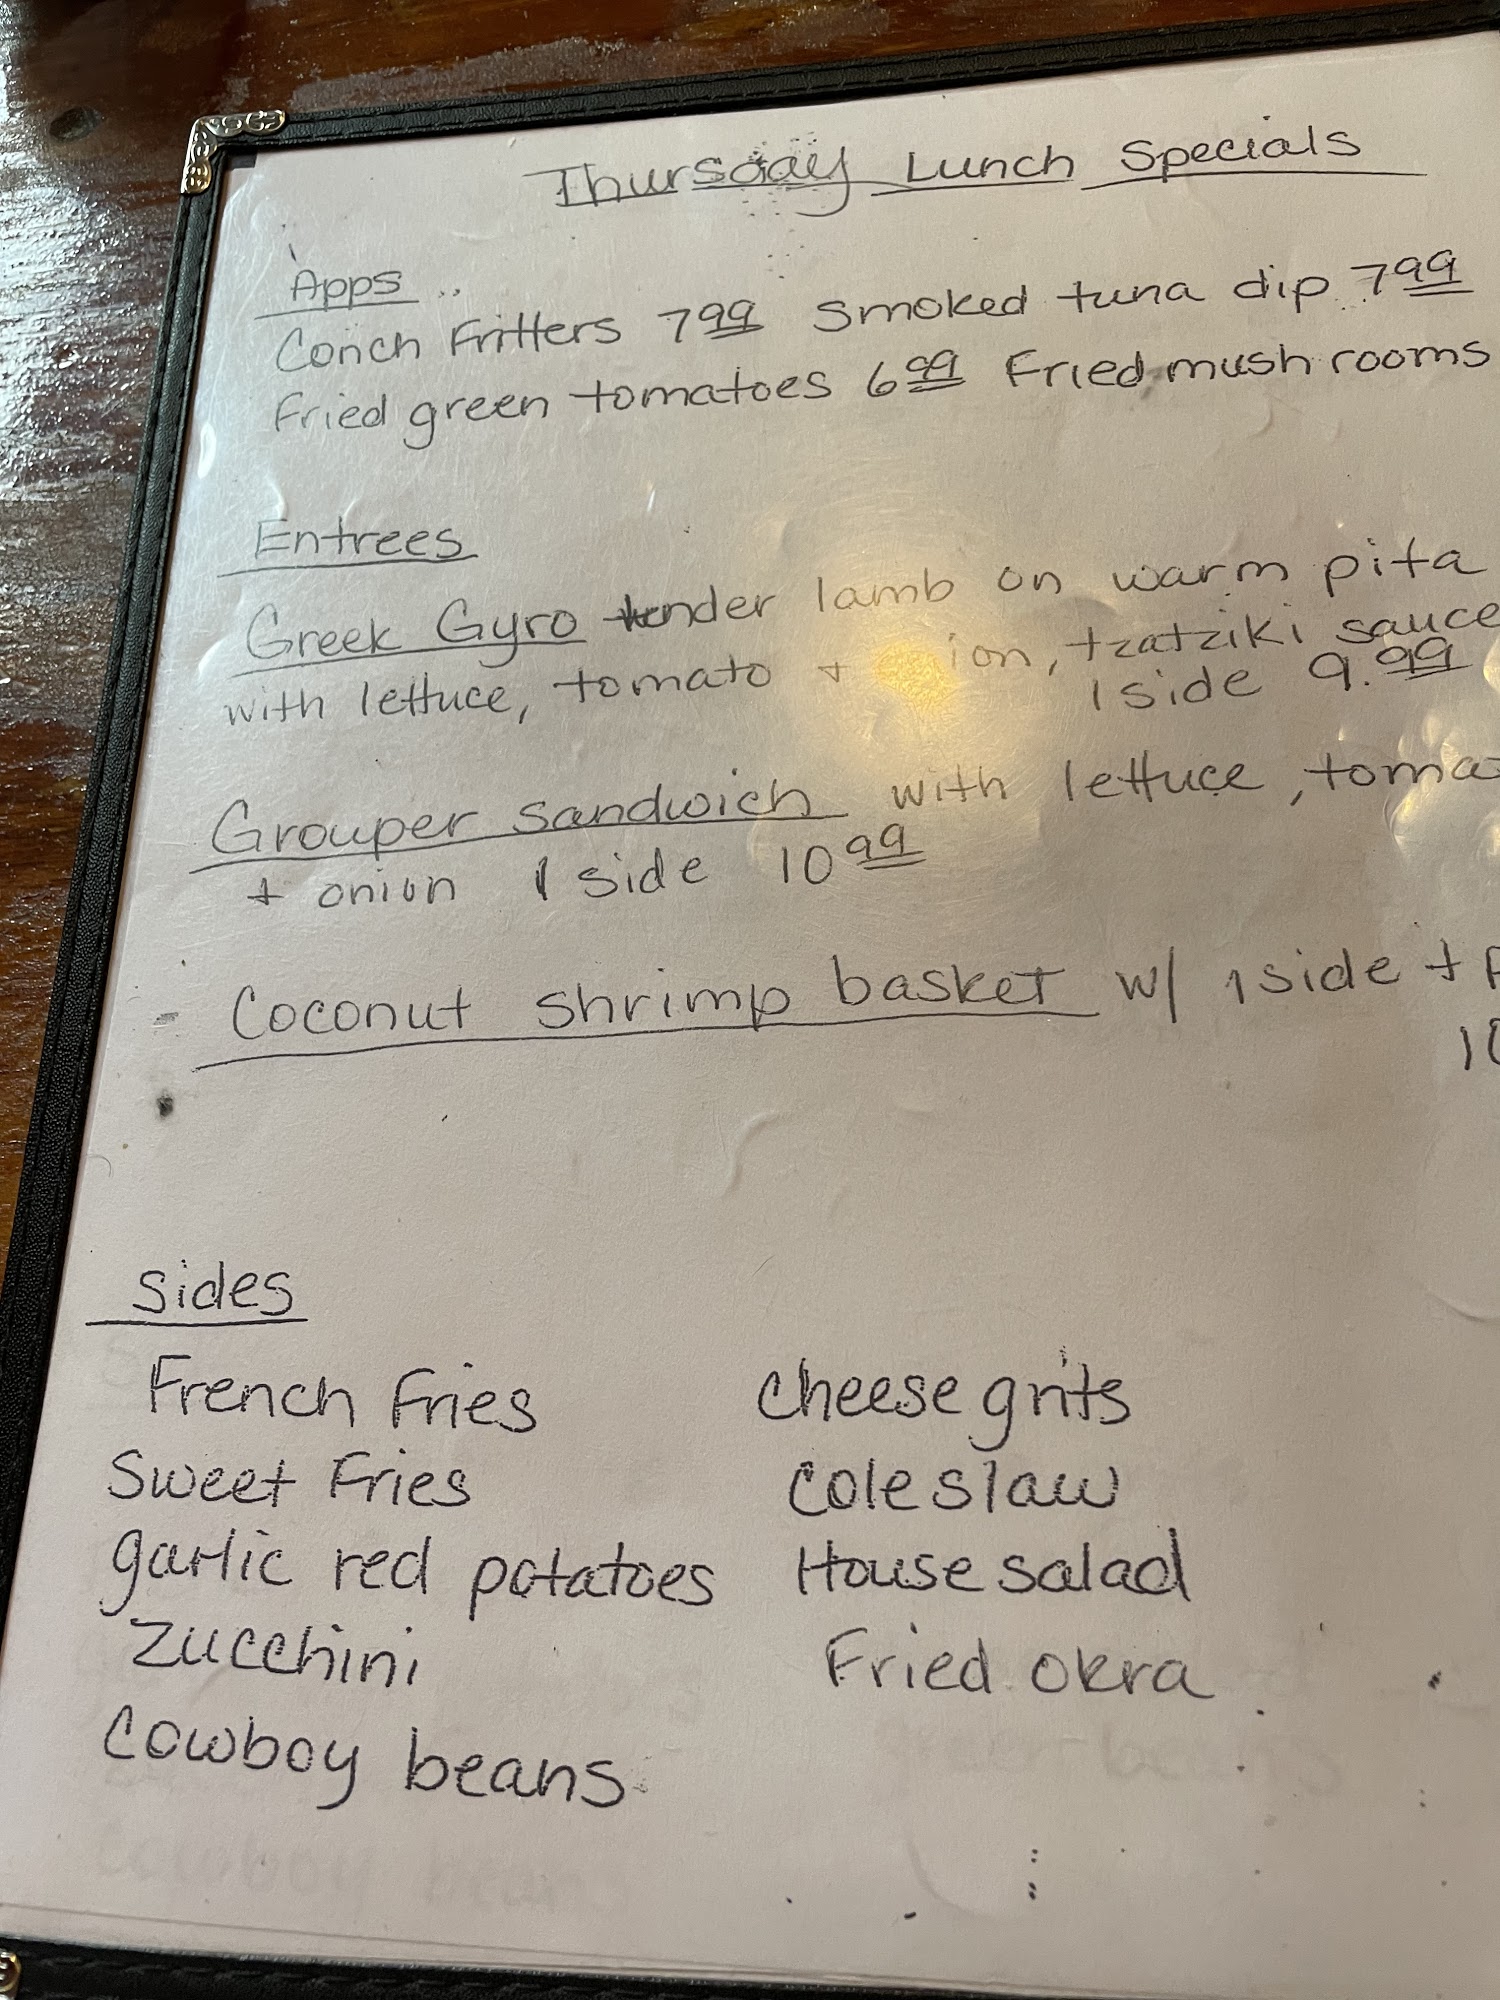 Thursday Lunch Specials
Apps
Conch Fritters 7 99 Smoked tuna dip 7 99
Fried green tomatoes 6 99 Fried mushrooms
Entrees
Greek Gyro tender lamb on warm pita
with lettuce, tomato + onion, tzatziki sauce
1 side 9.99
Grouper Sandwich with lettuce, toma
+ onion 1 side 10 99
Coconut shrimp basket w/ 1 side +
Sides
French Fries
Cheese grits
Sweet Fries
Coleslaw
garlic red potatoes
House salad
Zucchini
Fried okra
Cowboy beans